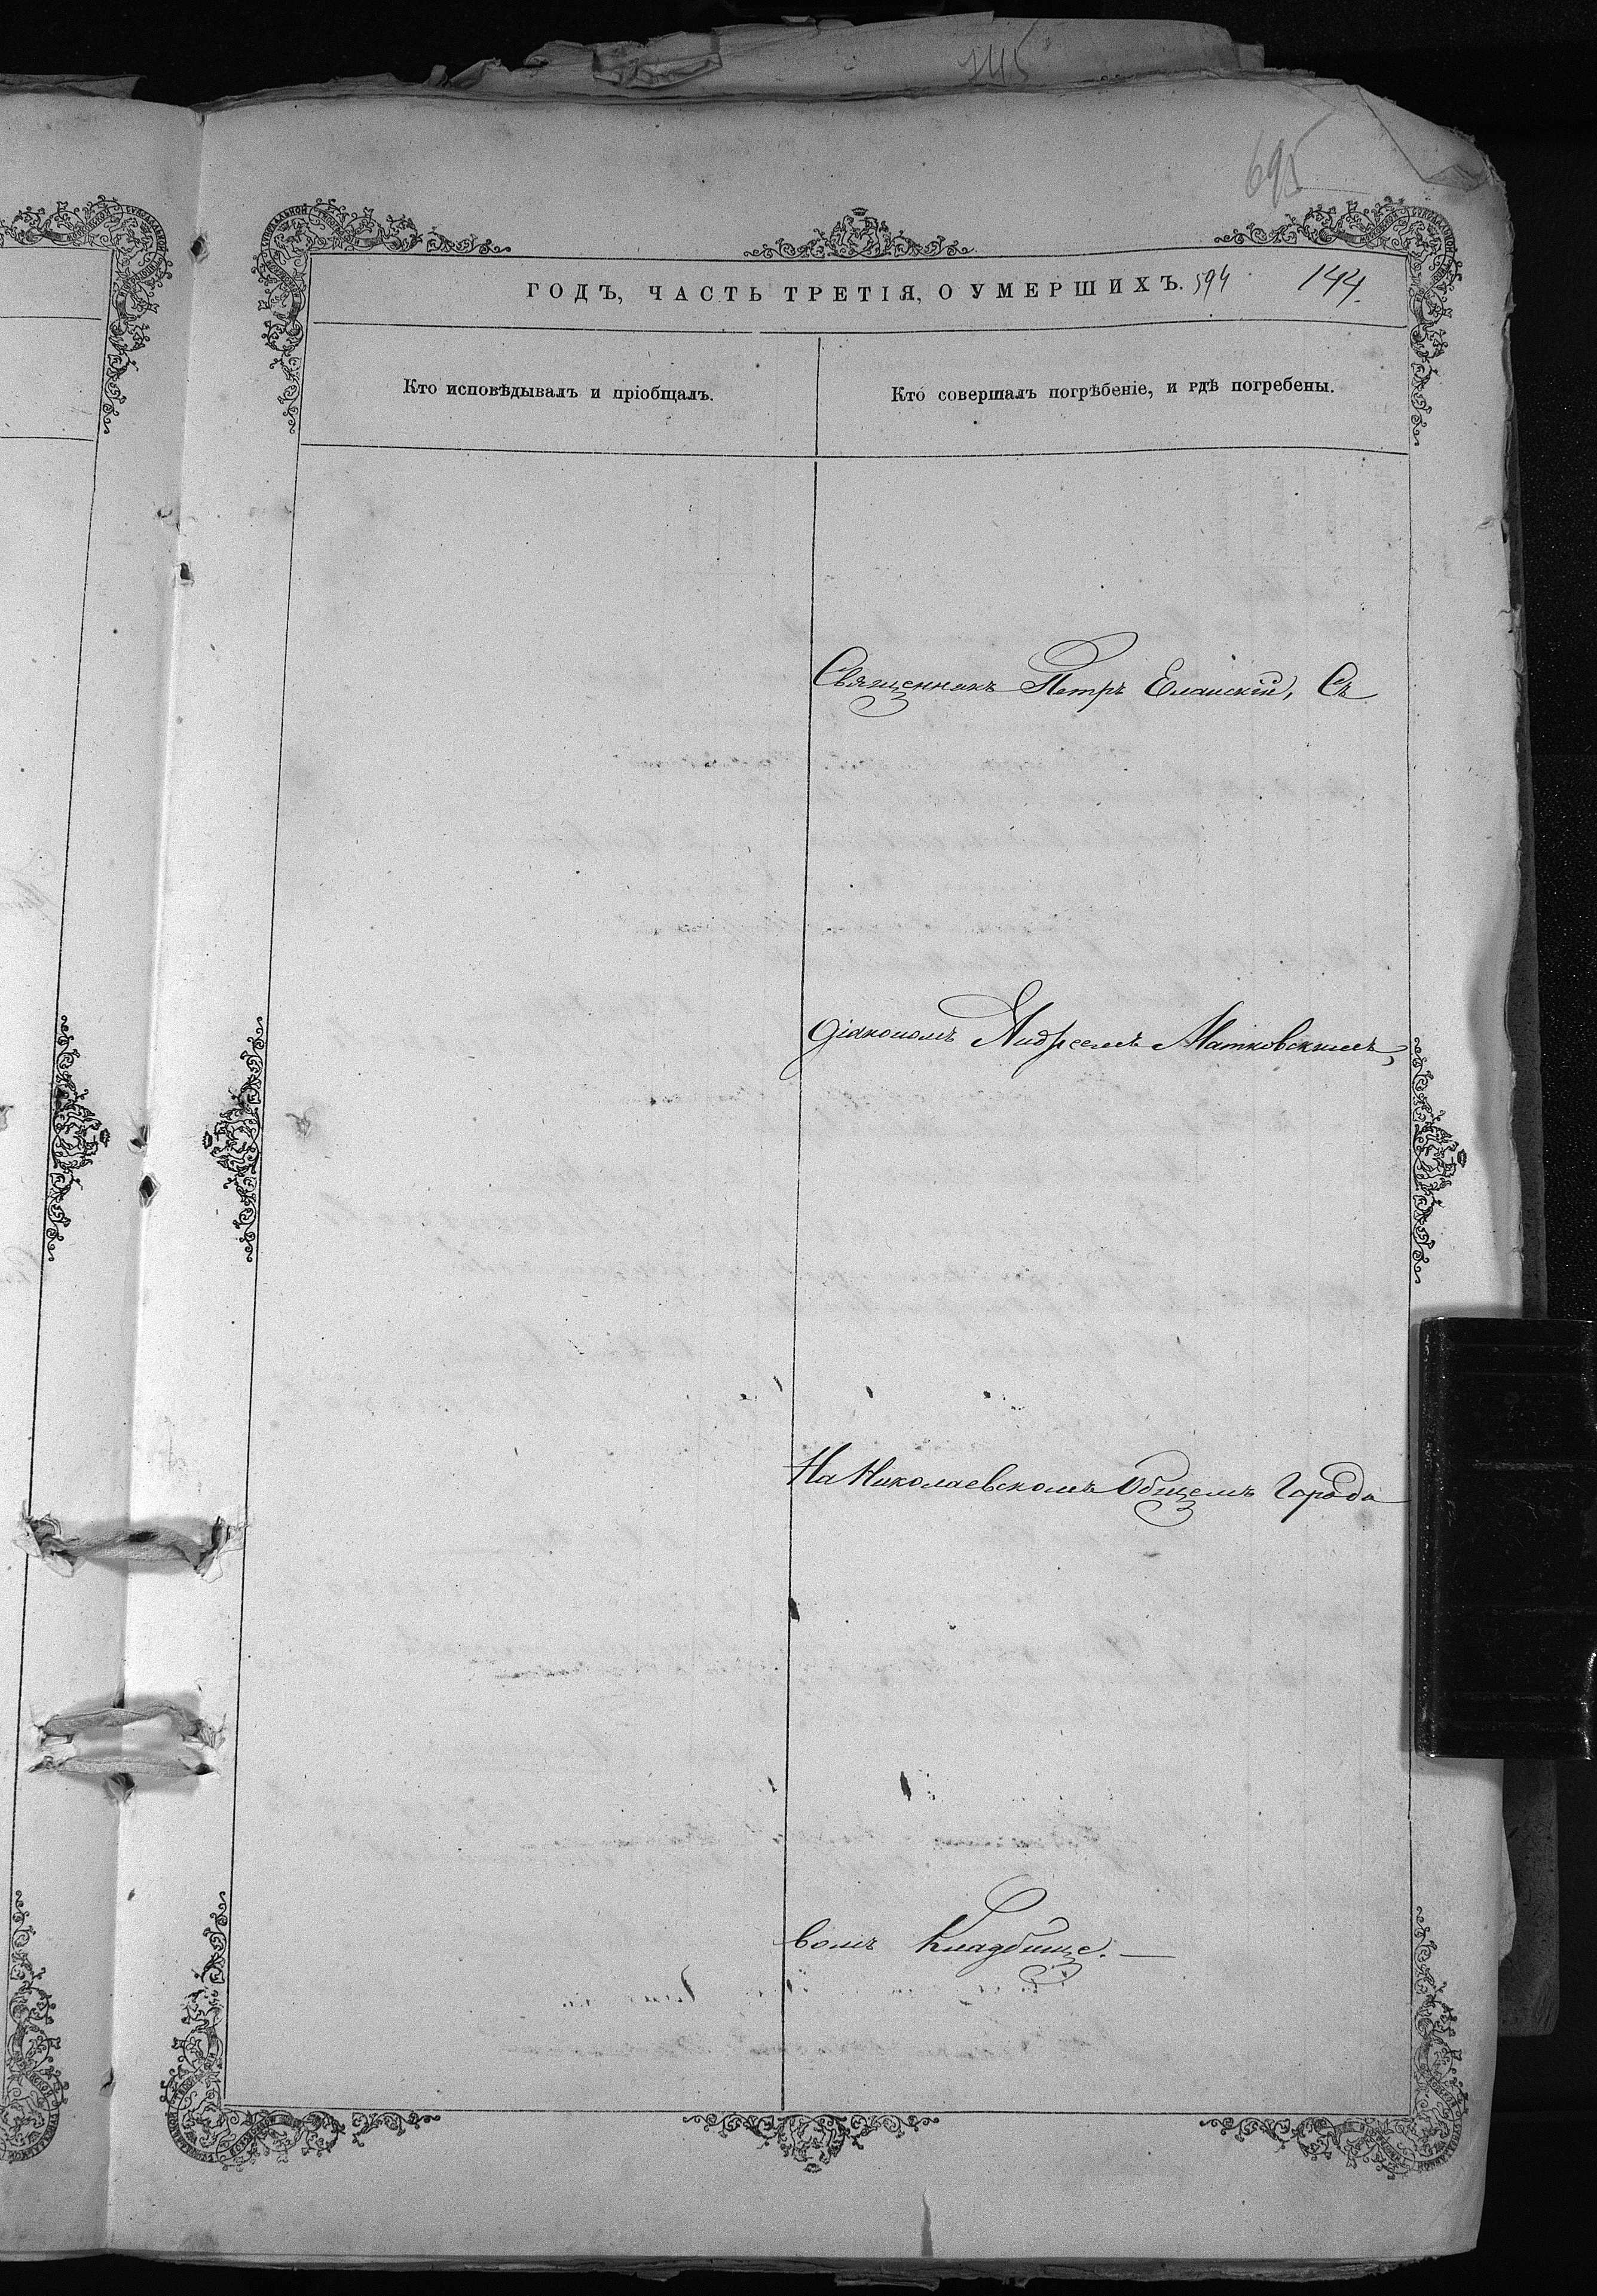 145
695
ГОДЪ, ЧАСТЬ ТРЕТІЯ, О УМЕРШИХЪ. 594 144.
Кто исповѣдывалъ и пріобщалъ.
Кто совершалъ погрѣбеніе, и гдѣ погребены.
Священникъ Петръ Еланскій, Съ
діакономъ Андреемъ Матковскимъ,
На Николаевскомъ Общемъ Городо
вомъ Кладбище. —